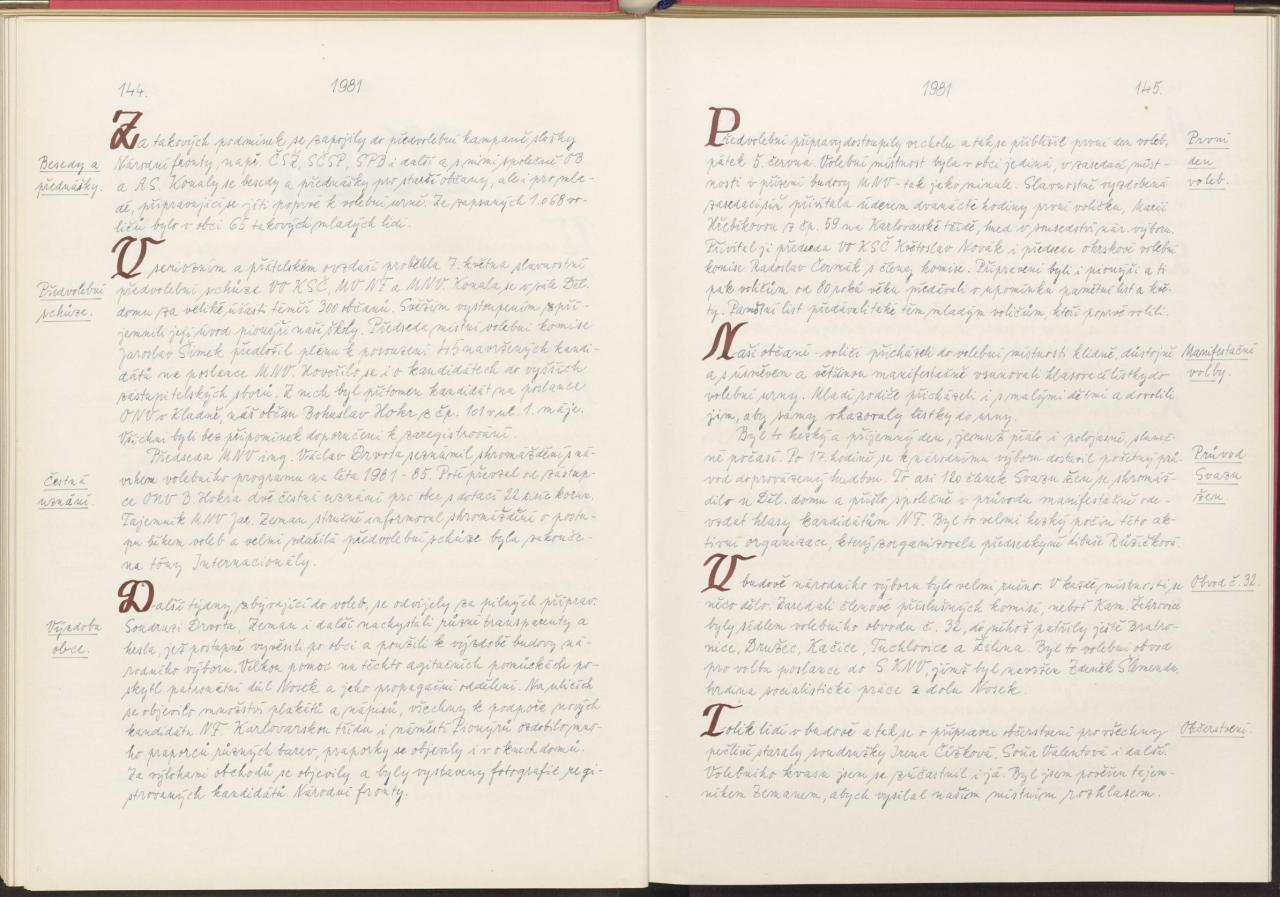 144.
1981
Besedy a
přednášky.
Za takových podmínek se zapojily do předvolební kampaně složky
Národní fronty, např. ČSŽ, SČSP, SPB i další a s nimi společně OB
a AS. Konaly se besedy a přednášky pro starší občany, ale i pro mla-
dé, připravující se jíti poprvé k volební urně. Ze zapsaných 1.068 vo-
ličů bylo v obci 65 takových mladých lidí.
Předvolební
schůze.
V seriozním a přátelském ovzduší proběhla 7. května slavnostní
předvolební schůze VO KSČ, MV NF a MNV. Konala se v sále Děl.
domu za veliké účasti téměř 300 občanů. Svěžím vystoupením zpří-
jemnili její úvod pionýři naší školy. Předseda místní volební komise
Jaroslav Šimek předložil plénu k posouzení 45 navržených kandi-
dátů na poslance MNV. Hovořilo se i o kandidátech do vyšších
zastupitelských sborů. Z nich byl přítomen kandidát na poslance
ONV v Kladně, náš občan Bohuslav Hokr z čp. 101 v ul. 1. máje.
Všichni byli bez připomínek doporučeni k zaregistrování.
Čestná
uznání.
Předseda MNV ing. Václav Drvota seznámil shromáždění s ná-
vrhem volebního programu na léta 1981 - 85. Poté převzal od zástup-
ce ONV B. Hokra dvě čestná uznání pro obec s dotací 22 tisíc korun.
Tajemník MNV Jar. Zeman stručně informoval shromáždění o postu-
pu během voleb a velmi zdařilá předvolební schůze byla zakonče-
na tóny Internacionály.
Výzdoba
obce.
Další týdny, zbývající do voleb, se odvíjely za pilných příprav.
Soudruzi Drvota, Zeman i další nachystali různé transparenty a
hesla, jež postupně vyvěsili po obci a použili k výzdobě budovy ná-
rodního výboru. Velkou pomoc na těchto agitačních pomůckách po-
skytl patronátní důl Nosek a jeho propagační oddělení. Na ulicích
se objevilo množství plakátů a nápisů, všechny k podpoře nových
kandidátů NF. Karlovarskou třídu i náměstí Pionýrů ozdobilo mno-
ho praporců různých barev, praporky se objevily i v oknech domů.
Za výlohami obchodů se objevily a byly vystaveny fotografie regi-
strovaných kandidátů Národní fronty.
1981
145.
První
den
voleb.
Předvolební přípravy dostoupily vrcholu a tak se přiblížil první den voleb,
pátek 5. června. Volební místnost byla v obci jediná, v zasedací míst-
nosti v přízemí budovy MNV - tak jako minule. Slavnostně vyzdobená
zasedací síň přivítala úderem dvanácté hodiny první voličku, Marii
Hřebíkovou z čp. 59 na Karlovarské třídě, hned v sousedství nár. výboru.
Přivítal ji předseda VO KSČ Květoslav Novák i předseda okrskové volební
komise Radoslav Červňák s členy komise. Připraveni byli i pionýři a ti
pak voličům od 80 roků věku předávali v upomínku pamětní list a kvě-
ty. Pamětní list předávali také těm mladým voličům, kteří poprvé volili.
Manifestační
volby.
Naši občané - voliči přicházeli do volební místnosti klidně, důstojně
a s úsměvem a většinou manifestačně vsunovali hlasovací lístky do
volební urny. Mladí rodiče přicházeli i s malými dětmi a dovolili
jim, aby samy vhazovaly lístky do urny.
Průvod
Svazu
žen.
Byl to hezký a příjemný den, jemuž přálo i polojasné, sluneč-
né počasí. Po 17. hodině se k národnímu výboru dostavil početný prů-
vod doprovázený hudbou. To asi 120 členek Svazu žen se shromáž-
dilo u Děl. domu a přišlo společně v průvodu manifestačně ode-
vzdat hlasy kandidátům NF. Byl to velmi hezký počin této ak-
tivní organizace, který zorganizovala předsedkyně Libuše Růžičková.
Obvod č. 32.
V budově národního výboru bylo velmi rušno. V každé místnosti se
něco dělo. Zasedali členové příslušných komisí, neboť Kam. Žehrovice
byly sídlem volebního obvodu č. 32, do něhož patřily ještě Bratro-
nice, Družec, Kačice, Tuchlovice a Žilina. Byl to volební obvod
pro volbu poslance do S KNV, jímž byl navržen Zdeněk Slemenda,
hrdina socialistické práce z dolu Nosek.
Občerstvení.
Tolik lidí v budově a tak se o přípravu občerstvení pro všechny
pečlivě staraly soudružky Irena Čížková, Soňa Valentová i další.
Volebního kvasu jsem se zúčastnil i já. Byl jsem pověřen tajem-
níkem Zemanem, abych vysílal naším místním rozhlasem.